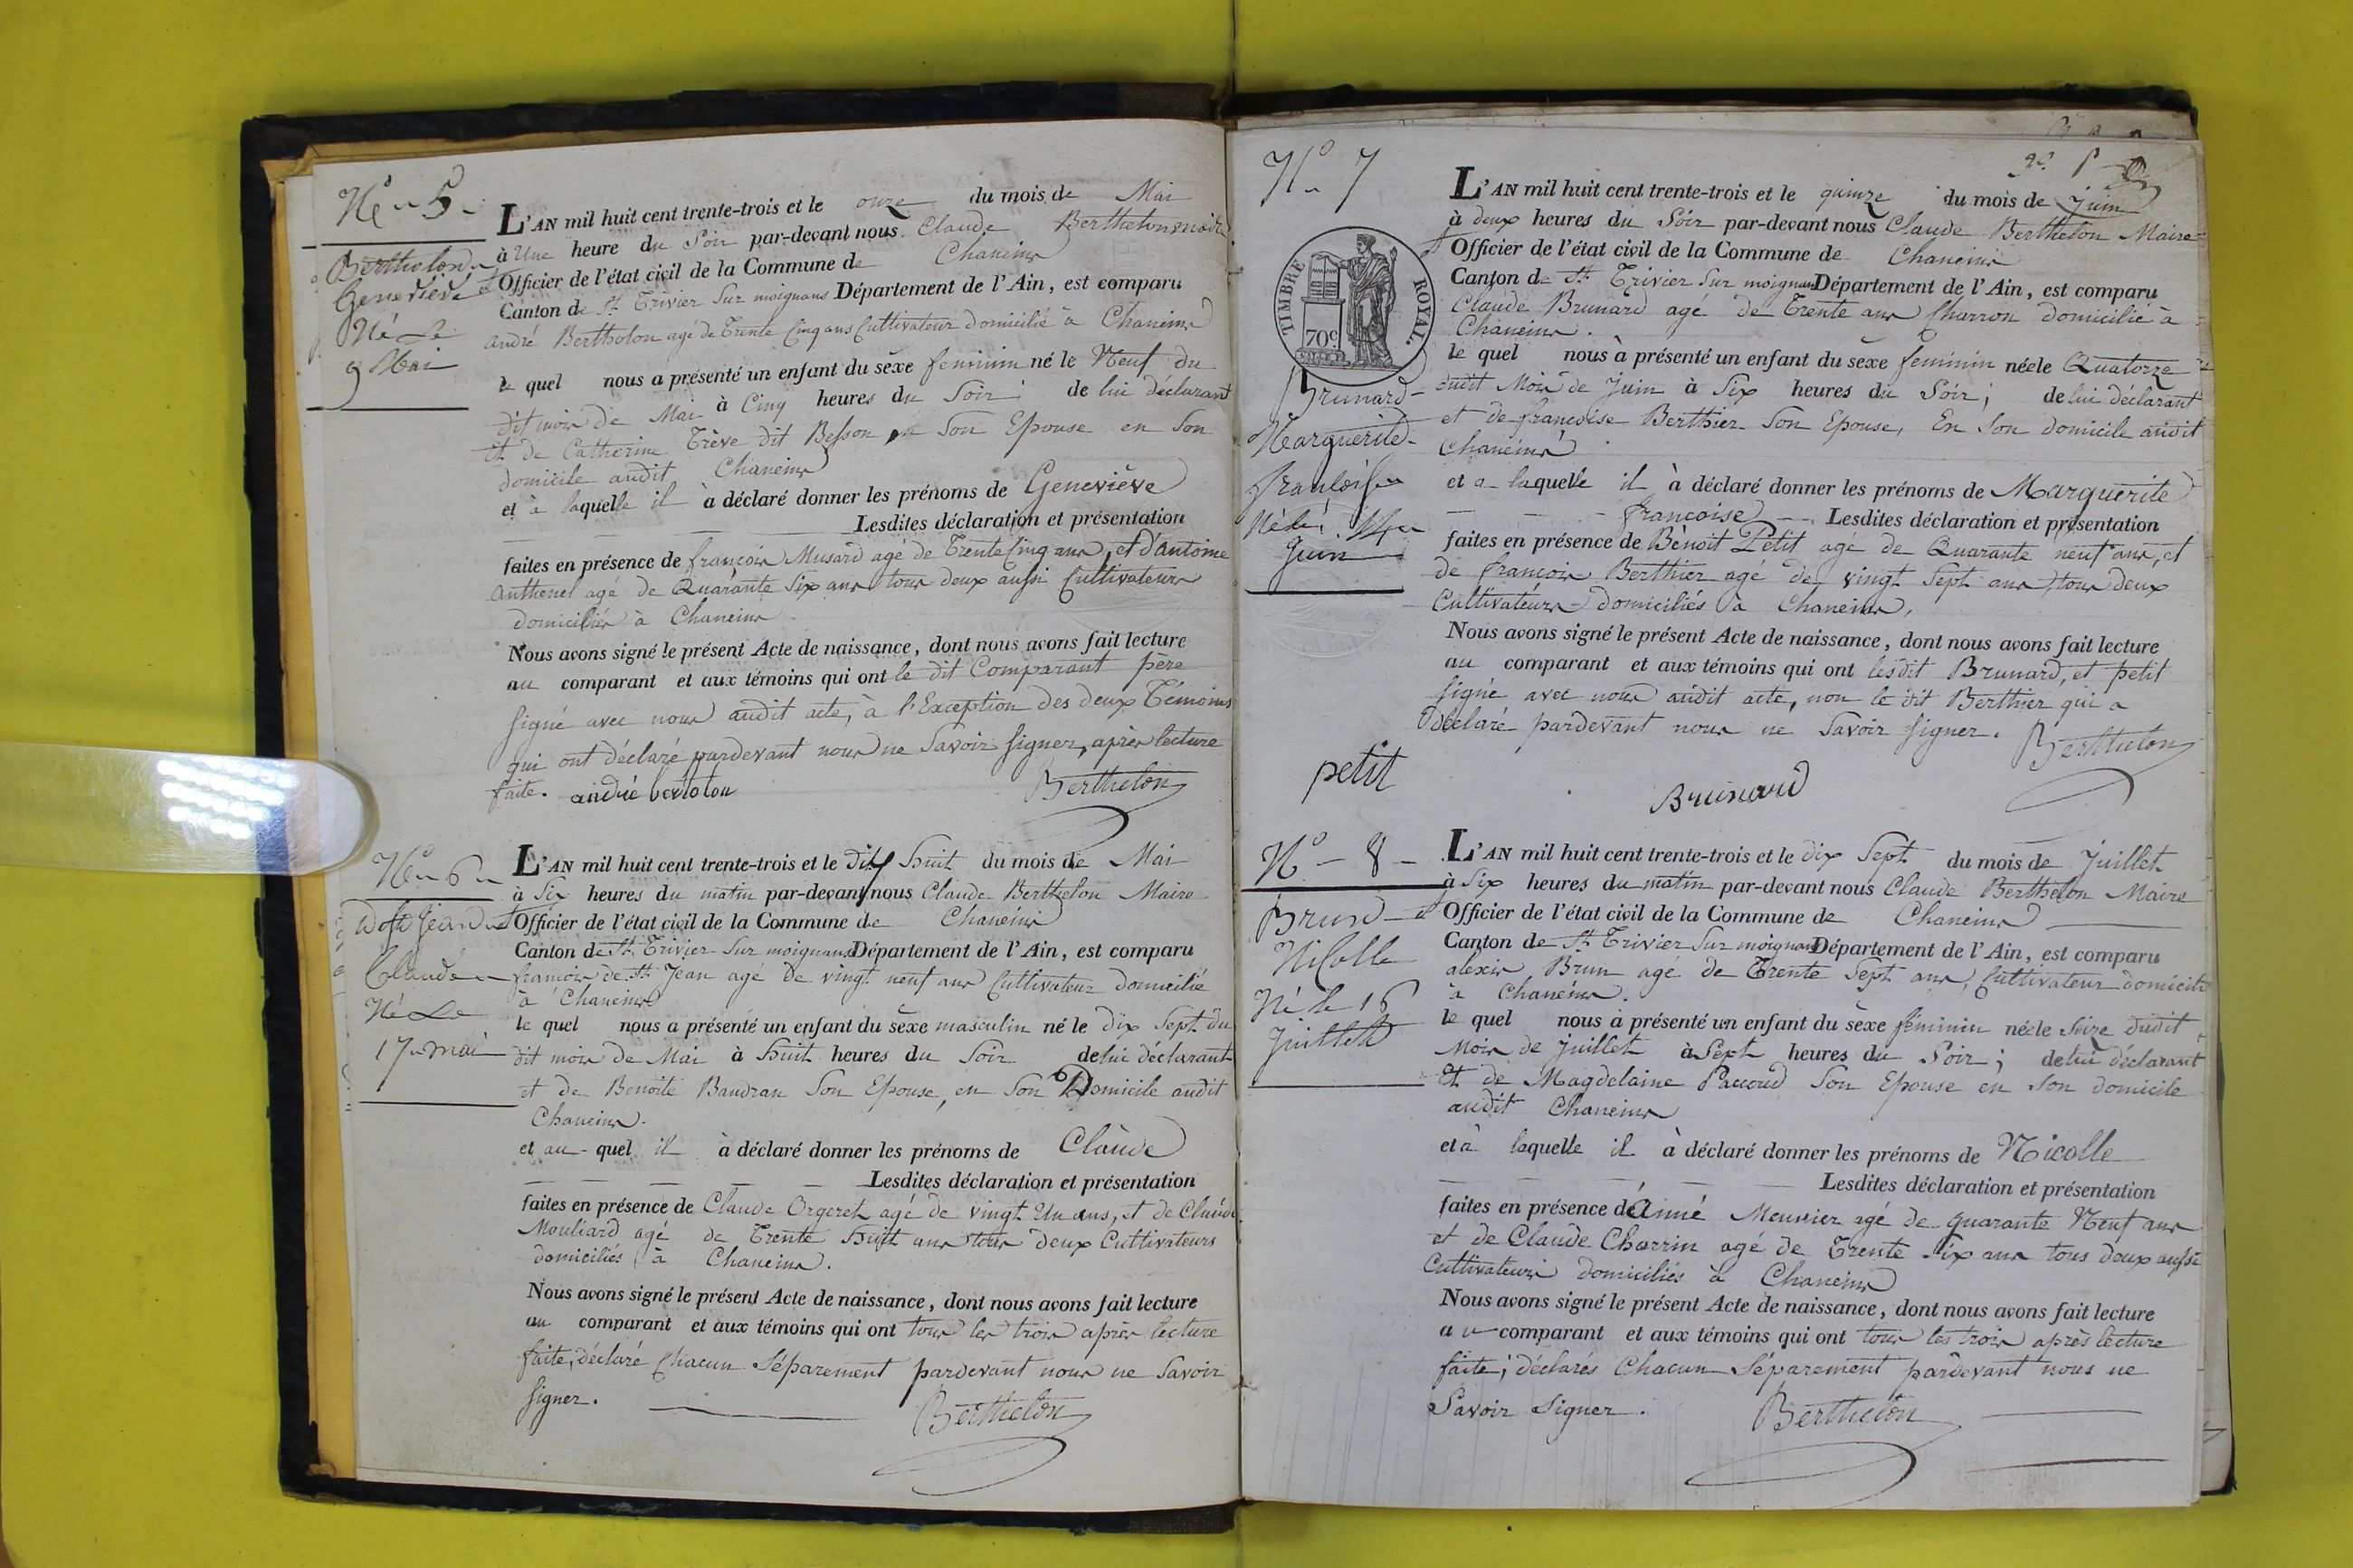 N° 5
Bertholon
Geneviève
Né Le
9 Mai
L'AN mil huit cent trente-trois et le onze du mois de Mai
à Une heure du Soir par-devant nous Claude Berthelon maire
Officier de l'état civil de la Commune de Chaneins
Canton de St. Trivier Sur moignans Département de l'Ain, est comparu
andré Bertholon agé de Trente Cinq ans Cultivateur domicilié à Chaneins
le quel nous a présenté un enfant du sexe feminin né le Neuf du
dit mois de Mai à Cinq heures du Soir ; de lui déclarant
et de Catherine Trève dit Besson Son Epouse en Son
domicile audit Chaneins
et à laquelle il à déclaré donner les prénoms de Geneviève
Lesdites déclaration et présentation
faites en présence de françois Musard agé de Trente Cinq ans, et d'antoine
anthenel agé de Quarante Six ans tous deux aussi Cultivateurs
domiciliés à Chaneins
Nous avons signé le présent Acte de naissance, dont nous avons fait lecture
au comparant et aux témoins qui ont le dit Comparant père
signé avec nous audit acte, à l'Exception des deux Témoins
qui ont déclaré pardevant nous ne Savoir signer, après lecture
faite. andré bertolon Berthelon
N° 6
de St Jean
Claude
Né Le
17 mai
L'AN mil huit cent trente-trois et le dix huit du mois de Mai
à Six heures du matin par-devant nous Claude Berthelon Maire
Officier de l'état civil de la Commune de Chaneins
Canton de St. Trivier Sur moignans Département de l'Ain, est comparu
françois de St. Jean agé de vingt neuf ans Cultivateur domicilié
à Chaneins
le quel nous a présenté un enfant du sexe masculin né le dix Sept du
dit mois de Mai à huit heures du Soir de lui déclarant
et de Benoite Baudran Son Epouse, en Son Domicile audit
Chaneins.
et au quel il à déclaré donner les prénoms de Claude
Lesdites déclaration et présentation
faites en présence de Claude Orgeret agé de vingt Un ans, et de Claude
Mouliard agé de Trente huit ans tous deux Cultivateurs
domiciliés à Chaneins.
Nous avons signé le présent Acte de naissance, dont nous avons fait lecture
au comparant et aux témoins qui ont tous les trois après lecture
faite, déclaré Chacun Séparement pardevant nous ne Savoir
signer. Berthelon
N° 7
TIMBRE ROYAL.
70c
Brunard
Marguerite
françoise
Née le 14
Juin
L'AN mil huit cent trente-trois et le quinze du mois de Juin
à deux heures du Soir par-devant nous Claude Berthelon Maire
Officier de l'état civil de la Commune de Chaneins
Canton de St. Trivier Sur moignans Département de l'Ain, est comparu
Claude Brunard agé de Trente ans Charron domicilié à
Chaneins.
le quel nous à présenté un enfant du sexe feminin née le Quatorze
dudit Mois de Juin à Six heures du Soir ; de lui déclarant
et de françoise Berthier Son Epouse, En Son domicile audit
Chaneins
et a laquelle il à déclaré donner les prénoms de Marguerite
françoise Lesdites déclaration et présentation
faites en présence de Benoit Petit agé de Quarante neuf ans, et
de françois Berthier agé de vingt Sept ans tous deux
Cultivateurs domiciliés à Chaneins,
Nous avons signé le présent Acte de naissance, dont nous avons fait lecture
au comparant et aux témoins qui ont lesdit Brunard, et petit
signé avec nous audit acte, non le dit Berthier qui a
déclaré pardevant nous ne Savoir signer. Berthelon
petit
Brunard
N° 8
Brun
Nicolle
Né le 16
Juillet
L'AN mil huit cent trente-trois et le dix Sept du mois de Juillet
à Six heures du matin par-devant nous Claude Berthelon Maire
Officier de l'état civil de la Commune de Chaneins
Canton de St. Trivier Sur moignans Département de l'Ain, est comparu
alexis Brun agé de Trente Sept ans, Cultivateur domicilié
à Chaneins.
le quel nous à présenté un enfant du sexe féminin née le Seize dudit
Mois de Juillet à Sept heures du Soir ; de lui déclarant
et de Magdelaine Paccoud Son Epouse en Son domicile
audit Chaneins
et à laquelle il à déclaré donner les prénoms de Nicolle
Lesdites déclaration et présentation
faites en présence d'Aimé Meunier agé de quarante Neuf ans
et de Claude Charrin agé de Trente Six ans tous deux aussi
Cultivateurs domiciliés à Chaneins
Nous avons signé le présent Acte de naissance, dont nous avons fait lecture
au comparant et aux témoins qui ont tous les trois après lecture
faite ; déclarés Chacun Séparement pardevant nous ne
Savoir Signer. Berthelon